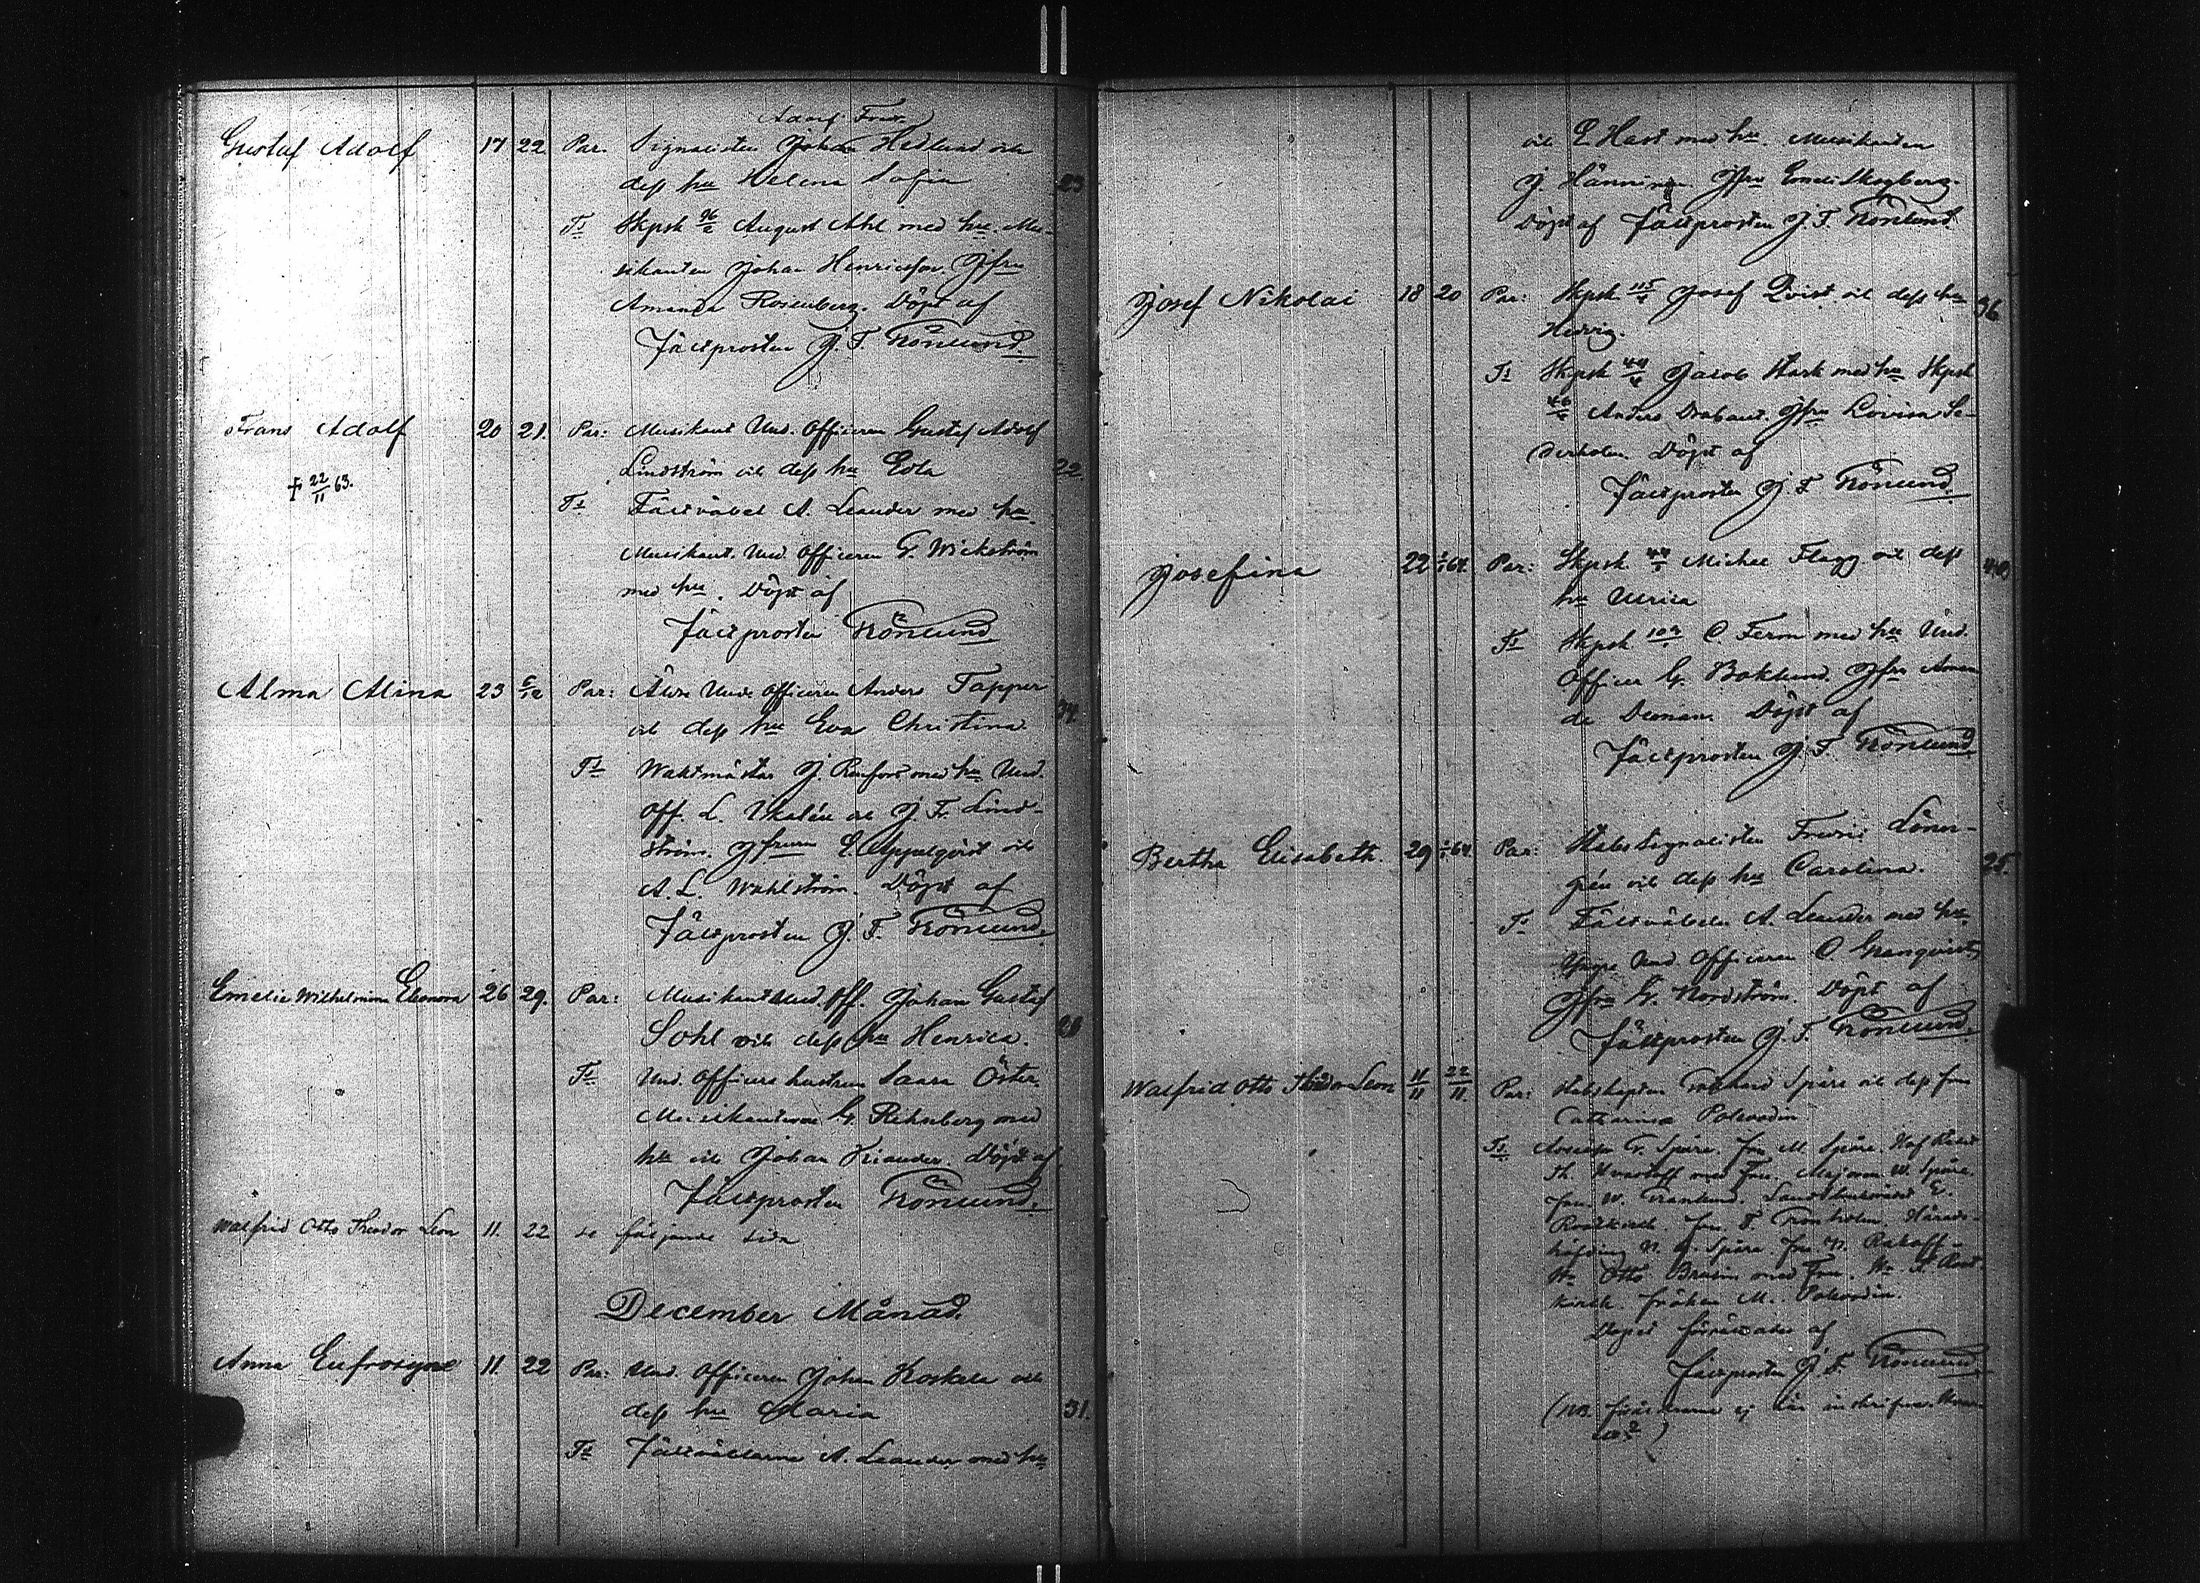 Adolf Fredr.
Gustaf Adolf 17 22 Par. Signalisten Johan Hedlund och
dess hu Helena Sofia 23
Ts Skpsk 96/2 August Ahl med hu. Mu-
sikanten Johan Henricsson. Jfru
Amanda Rosenberg. Döpt af
Fältprosten J. F. Grönlund.
Frans Adolf 20 21. Par: Musikant Und. Officeren Gustaf Adolf
Lindström och dess hu Eva 22.
† 22/11 63.
Ts Fältväbel A. Leander med hu.
Musikant. Und. Officeren G. Wickström
med hu. Döpt af
Fältprosten Grönlund
Alma Alina 23 6/12 Par: Äldre Unde Officeren Anders Tapper
och dess hu Eva Christina 34.
Ts Waktmästar J. Renfors med hu Und.
Off. L. Ekelén och J. Fr. Lind-
ström. Jfrurna E. Appelqvist och
A. L. Wahlström. Döpt af
Fältprosten J. F. Grönlund.
Emelie Wilhelmina Eleonora 26 29. Par: Musikant Und. Off. Johan Gustaf
Sohl och dess hu Henrica. 28
Ts Und. Officers hustrun Saara Öster.
Musikanterne G. Rehnberg med
hu och Johan Kiander. Döpt af
Fältprosten Grönlund.
Walfrid Otto Theodor Leon 11. 22 se följande sida
December Månad.
Anna Eufrosyne 11. 22 Par: Und. Officeren Johan Koskela och
dess hu Maria 31.
Ts Fältväblarne A. Leander med hu
och E Hast med hu. Musikanten
J. Hänninen. Jfru Emeli Skogberg.
Döpt af Fältprosten J. F. Grönlund.
Josef Nikolai 18 20 Par: Skpsk 115/4 Josef Qvist och dess hu 36
Hedvig.
Ts Skpsk 44/4 Jacob Stark med hu Skpsk
46/4 Anders Drabant. Jfru Lovisa Se-
derholm Döpt af
Fältprosten J. F. Grönlund.
Josefina 22 1/1 64. Par: Skpsk 44/1 Michel Flagg och dess 40
hu Ulrica
Ts Skpsk C. Ferm med hu Und.
Officer G. Boklund. Jfru Aman-
da Döpt af
Fältprosten J. F. Grönlund
Bertha Elisabeth. 29 1/1 64. Par: Stabssignalisten Fredric Löner-
grén och dess hu Carolina. 25.
Ts Fältväbeln A. Leander med hu.
Yngre Und. Officeren O. Granqvist,
Jfru G. Nordström. Döpt af
Fältprosten J. F. Grönlund.
Walfrid Otto Theodor Leon 11/11 22/11. Par: Stabskapten Spåre och dess fru
Catharina
Ts G. Spåre. fru M. Spåre. Hof Rådet
Th. med Fru. Majoren W. Spåre.
fru W. Landthushåld. E.
fru F. Härads-
höfding N. G. Spåre. fru N.
Otto Brusin med Fru.
kirch. fröken M.
Dopet förrättades af
Fältprosten J. F. Grönlund.
(NB. ej här
)